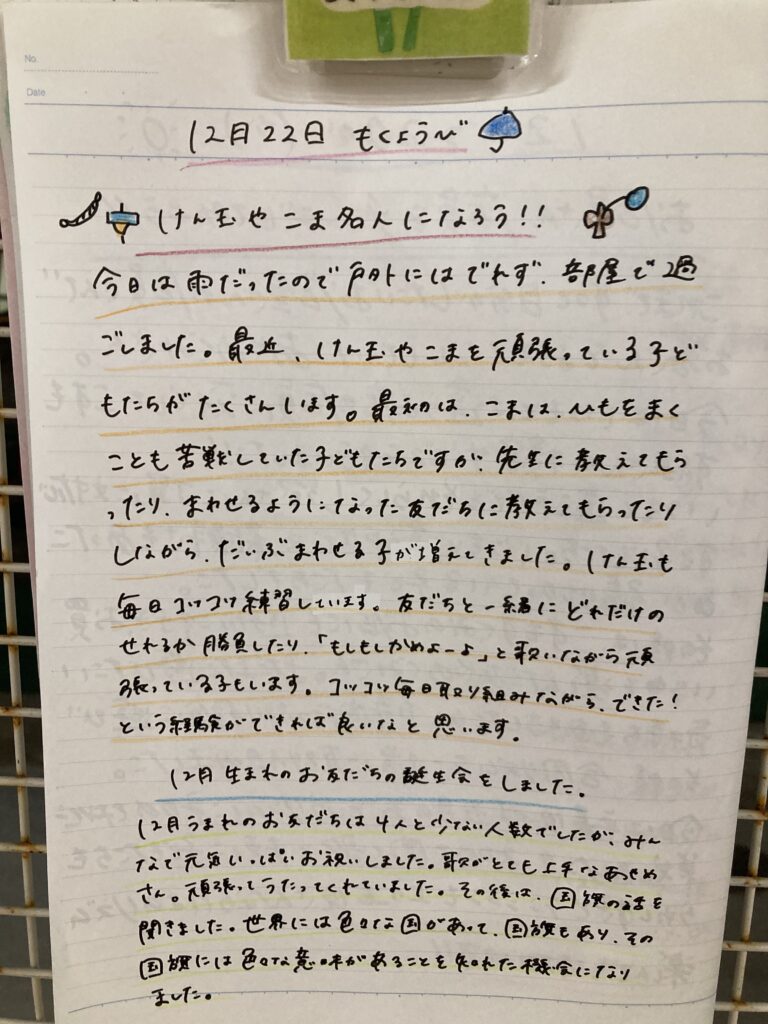 No.
Date
12月22日 もくようび
けん玉やこま名人になろう!!
今日は雨だったので戸外にはでれず、部屋で過
ごしました。最近、けん玉やこまを頑張っている子ど
もたちがたくさんいます。最初は、こまは、ひもをまく
ことも苦戦していた子どもたちですが、先生に教えてもら
ったり、まわせるようになった友だちに教えてもらったり
しながら、だいぶまわせる子が増えてきました。けん玉も
毎日コツコツ練習しています。友だちと一緒にどれだけの
せれるか勝負したり、「もしもしかめよーよ」と歌いながら頑
張っている子もいます。コツコツ毎日取り組みながら、できた!
という経験ができれば良いなと思います。
12月生まれのお友だちの誕生会をしました。
12月うまれのお友だちは4人と少ない人数でしたが、みん
なで元気いっぱいお祝いしました。歌がとても上手なあせめ
さん。頑張ってうたってくれていました。その後は、国旗の話を
聞きました。世界には色々な国があって、国旗もあり、その
国旗には色々な意味があることを知れた機会になり
ました。